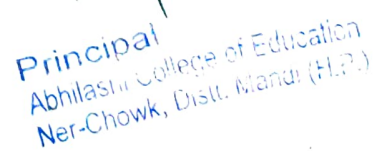 Principal
Abhilashi College of Education
Ner-Chowk, Distt. Mandi (H.P.)